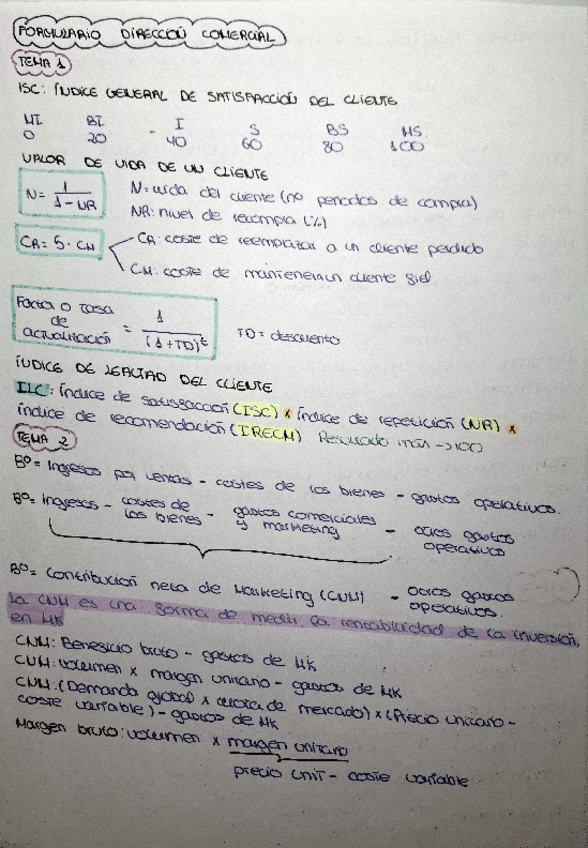 FORMULARIO DIRECCIÓN COMERCIAL
TEMA 1
ISC: ÍNDICE GENERAL DE SATISFACCIÓN DEL CLIENTE
MI BI - I S BS MS
0 20 40 60 80 100
VALOR DE VIDA DE UN CLIENTE
N = 1 / (1 - NR) N: vida del cliente (nº periodos de compra)
NR: nivel de recompra (%)
CR = 5 · CM CR: coste de reemplazar a un cliente perdido
CM: coste de mantener a un cliente fiel
Factor o tasa de actualización = 1 / (1 + TD)^t TD = descuento
ÍNDICE DE LEALTAD DEL CLIENTE
ILC: Índice de satisfacción (ISC) x Índice de repetición (NR) x
índice de recomendación (IRECM) Resultado máx → 100
TEMA 2
Bº = Ingresos por ventas - costes de los bienes - gastos operativos.
Bº = Ingresos - costes de los bienes - gastos comerciales y marketing - otros gastos operativos
Bº = Contribución neta de Marketing (CNM) - otros gastos operativos.
La CNM es una forma de medir la rentabilidad de la inversión
en MK
CNM: Beneficio bruto - gastos de MK
CNM: volumen x margen unitario - gastos de MK
CNM: (Demanda global x cuota de mercado) x (Precio unitario -
coste variable) - gastos de MK
Margen bruto: volumen x margen unitario
precio unit - coste variable